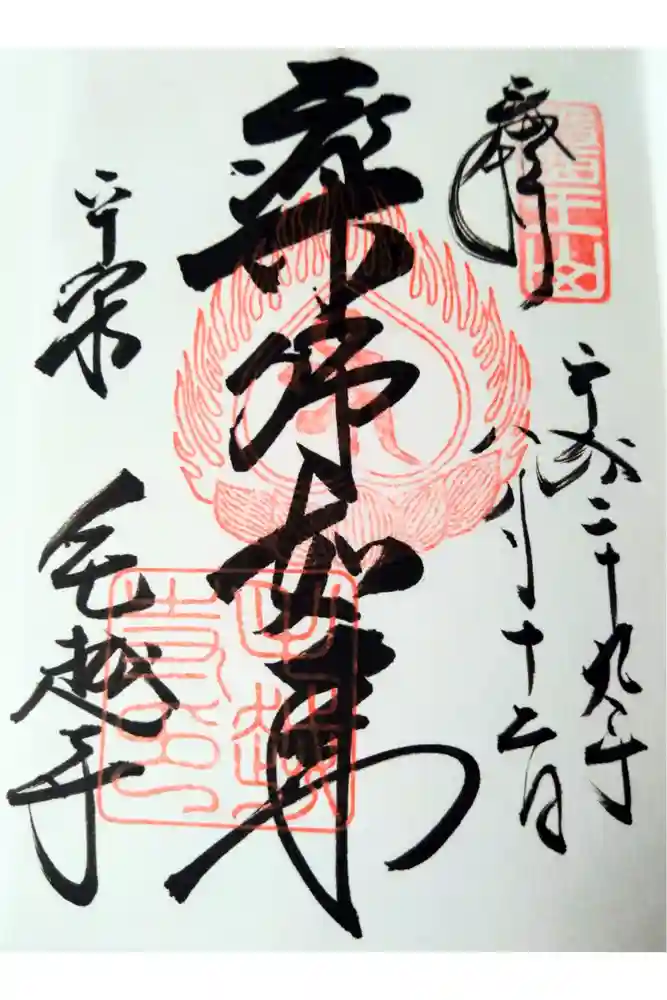 奉拝
醫王山
平成二十九年
八月十二日
薬師如来
平泉
毛越寺
毛越寺印